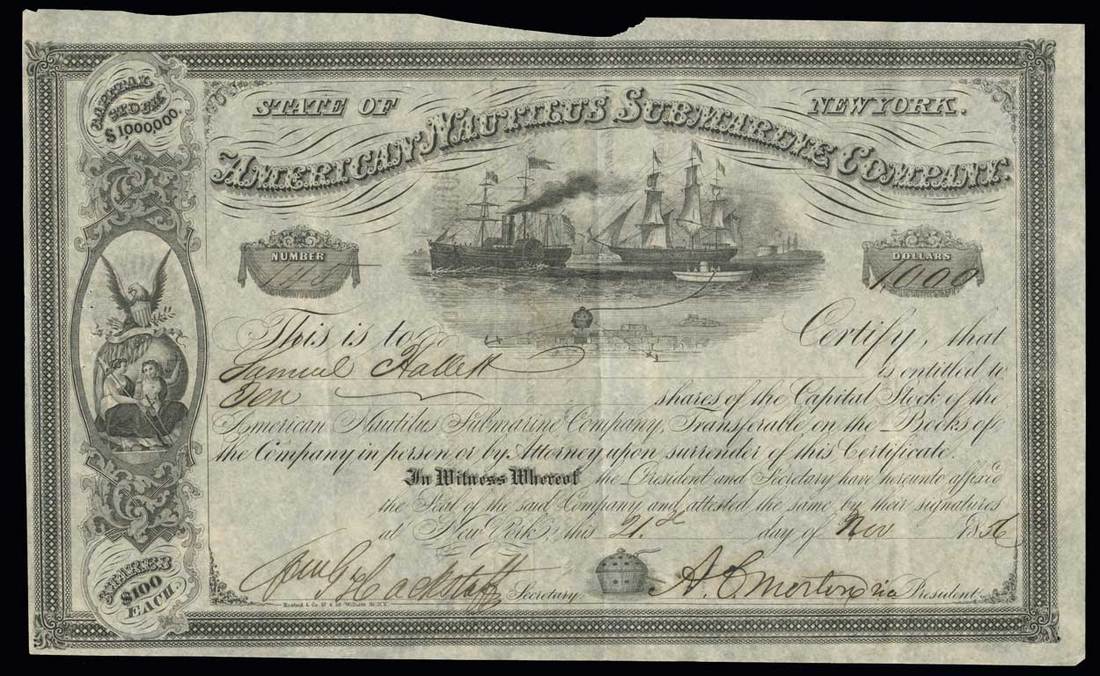 CAPITAL
STOCK
$1,000,000.
STATE OF NEW YORK.
AMERICAN NAUTILUS SUBMARINE COMPANY.
NUMBER
DOLLARS
1,000
This is to Certify, that
Samuel Hallett is entitled to
Ten shares of the Capital Stock of the
American Nautilus Submarine Company, Transferable on the Books of
the Company in person or by Attorney upon surrender of this Certificate.
In Witness Whereof the President and Secretary have hereunto affixed
the Seal of the said Company and attested the same by their signatures
at New York, this 21.st day of Nov 1856
Secretary. President.
SHARES
$100
EACH.